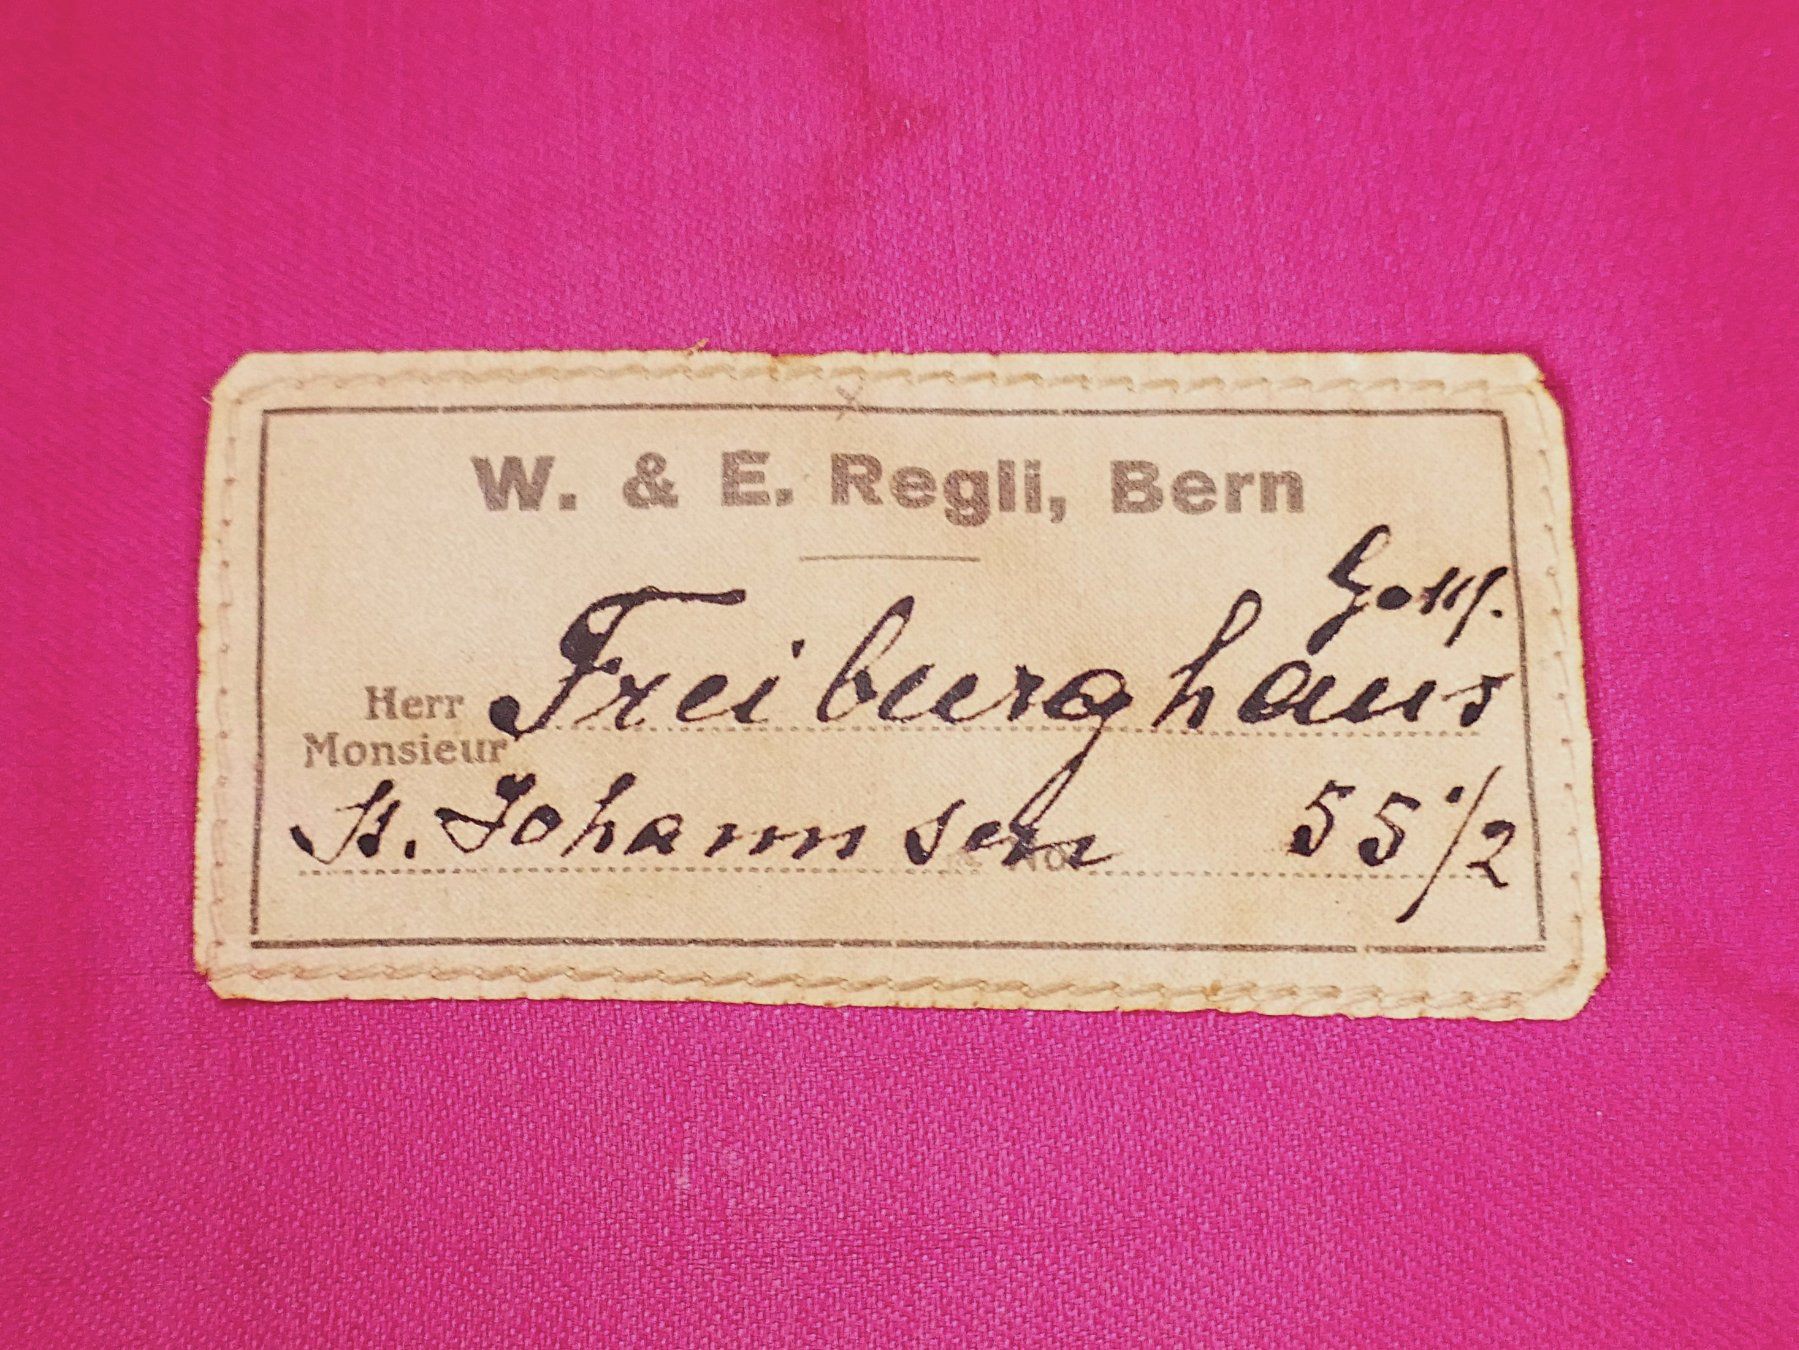 W. & E. Regli, Bern
Gottf.
Herr Freiburghaus
Monsieur
St. Johannsen No 55 1/2